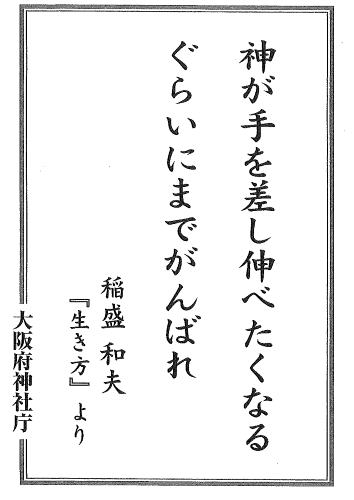 神が手を差し伸べたくなる
ぐらいにまでがんばれ
稲盛 和夫
『生き方』より
大阪府神社庁